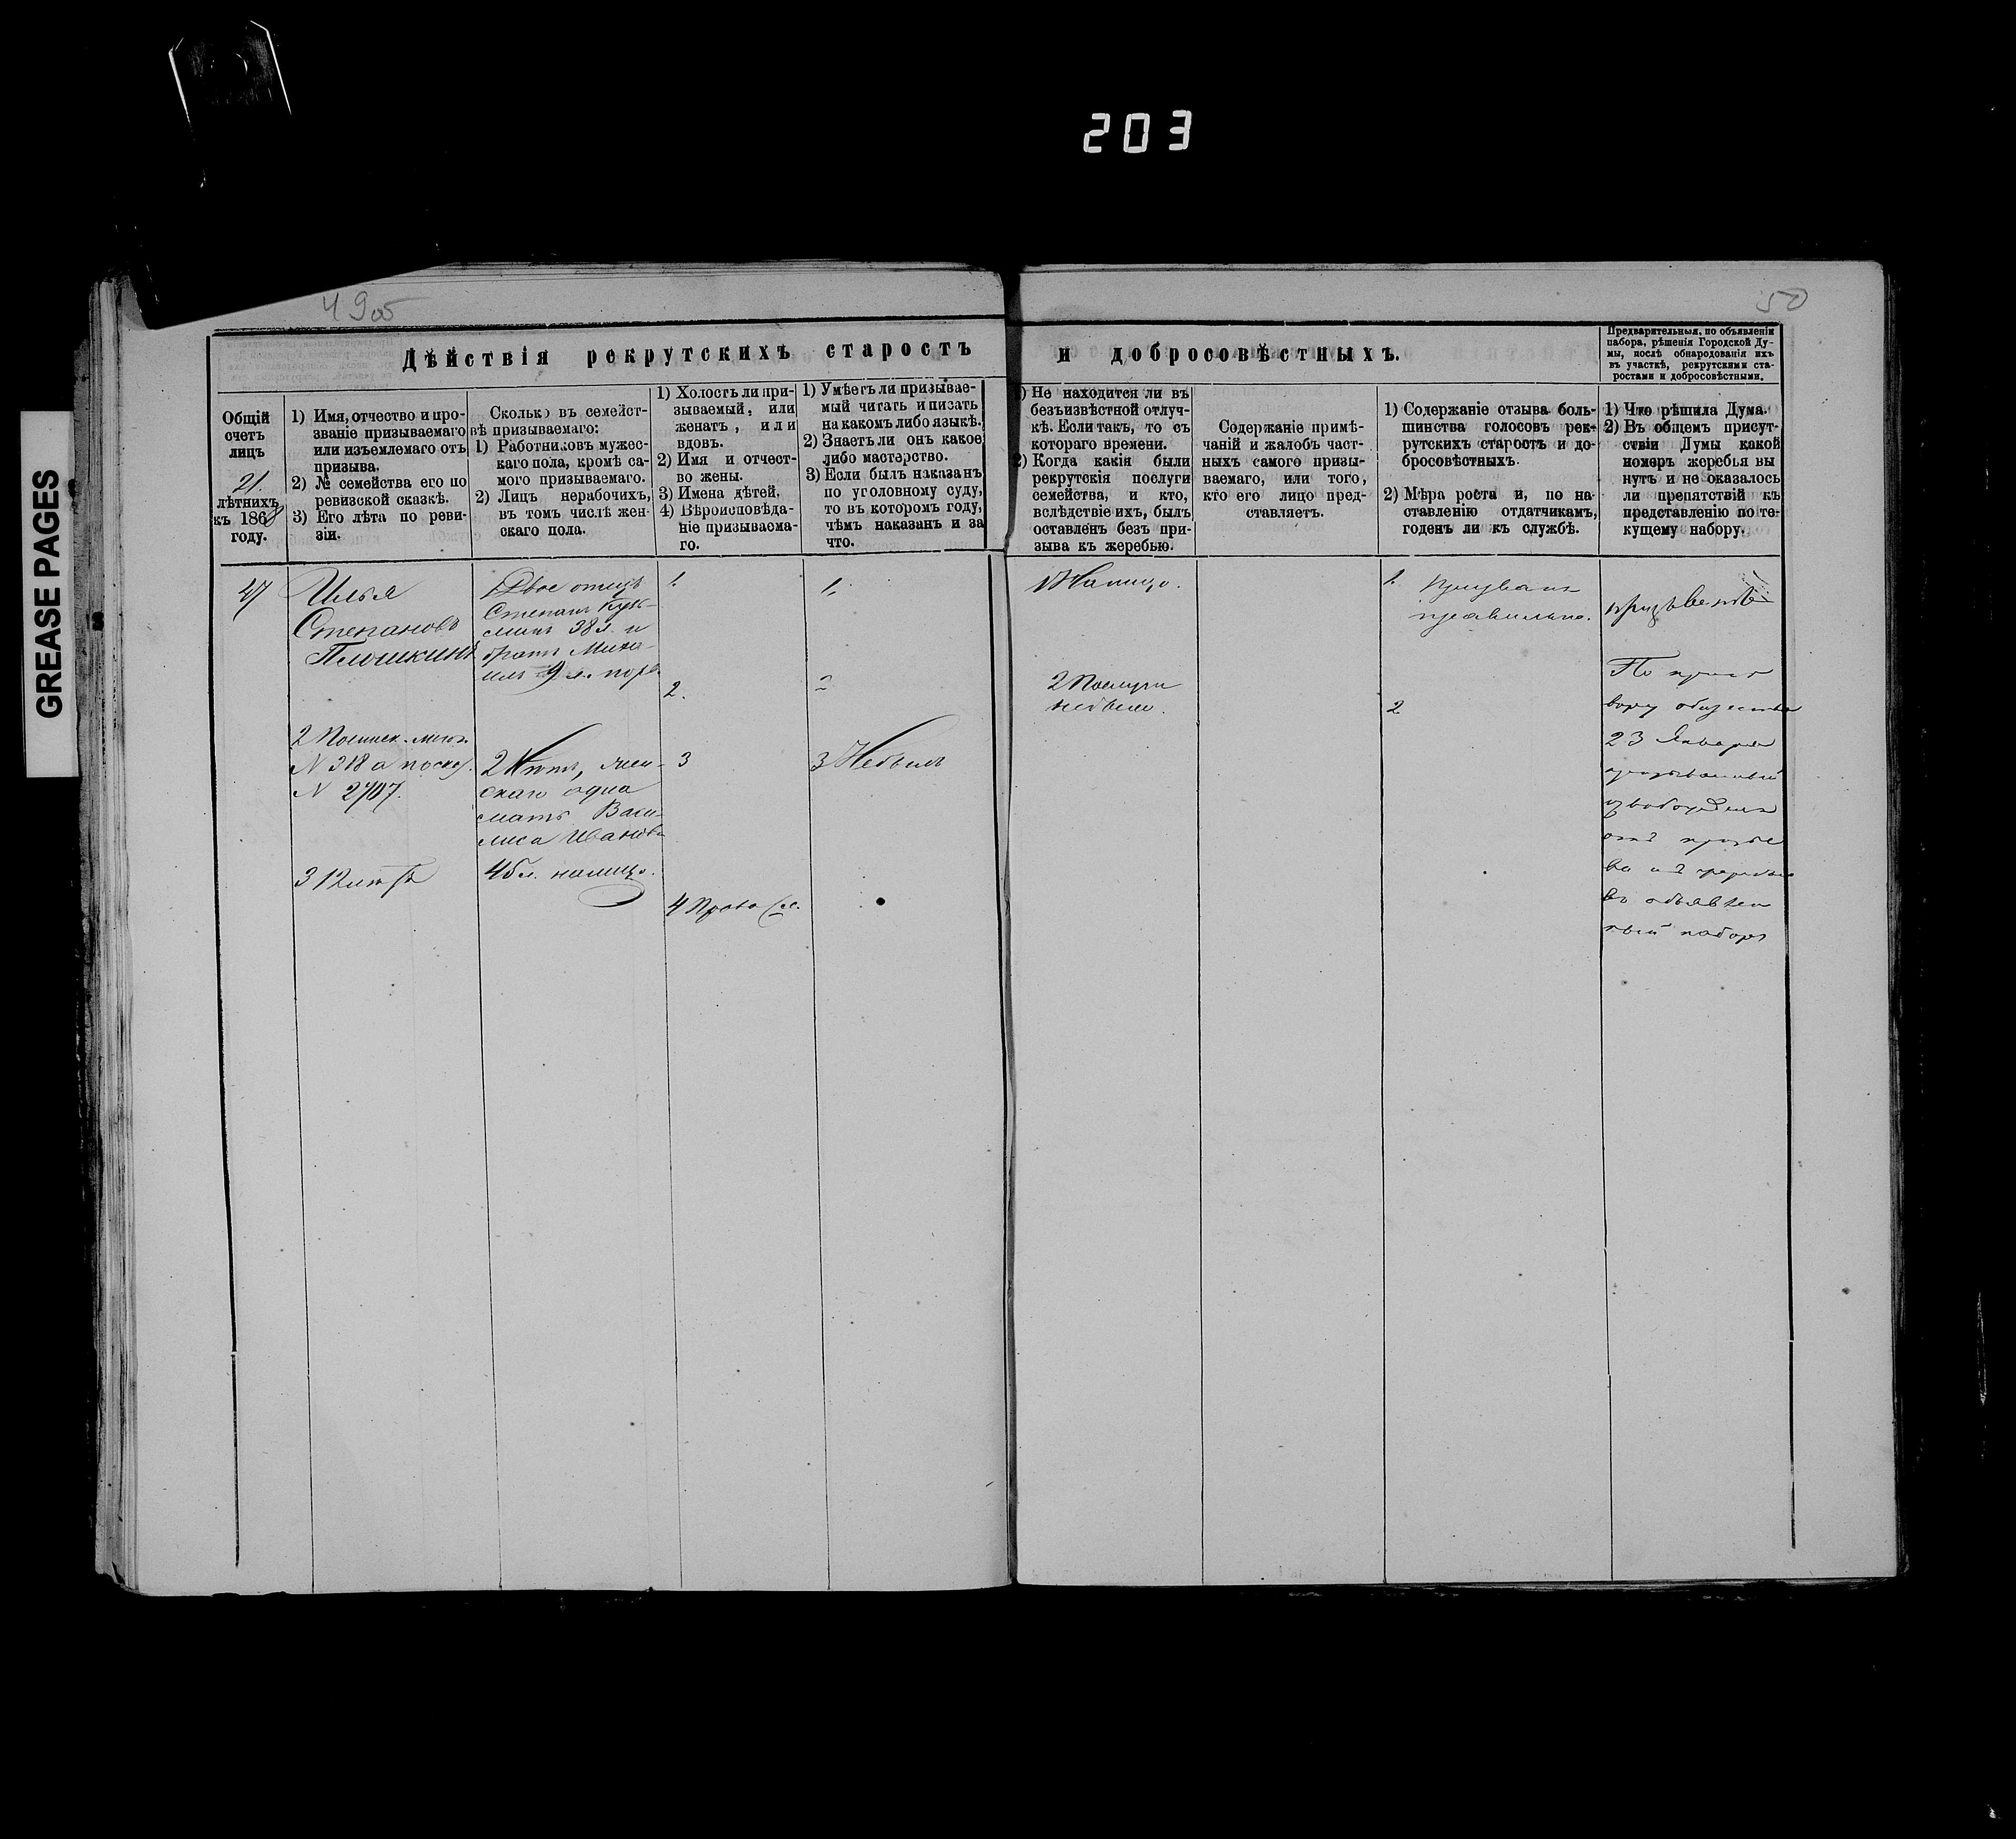 203
GREASE PAGES
49об
50
Дѣйствія рекрутскихъ старостъ
и добросовѣстныхъ.
Предварительныя, по объявленіи
набора, рѣшенія Городской Ду-
мы, послѣ обнародованія ихъ
въ участкѣ, рекрутскими ста-
ростами и добросовѣстными.
Общій
счетъ
лицъ
21
лѣтнихъ
къ 1868
году.
1) Имя, отчество и про-
званіе призываемаго
или изъемлемаго отъ
призыва.
2) № семейства его по
ревизской сказкѣ.
3) Его лѣта по реви-
зіи.
Сколько въ семейст-
вѣ призываемаго:
1) Работниковъ мужес-
каго пола, кромѣ са-
мого призываемаго.
2) Лицъ нерабочихъ,
въ томъ числѣ жен-
скаго пола.
1) Холостъ ли при-
зываемый, или
женатъ, или
вдовъ.
2) Имя и отчест-
во жены.
3) Имена дѣтей.
4) Вѣроисповѣда-
ніе призываема-
го.
1) Умѣетъ ли призывае-
мый читать и писать
на какомъ либо языкѣ.
2) Знаетъ ли онъ какое
либо мастерство.
3) Если былъ наказанъ
по уголовному суду,
то въ которомъ году,
чѣмъ наказанъ и за
что.
1) Не находится ли въ
безъизвѣстной отлуч-
кѣ. Если такъ, то съ
котораго времени.
2) Когда какія были
рекрутскія послуги
семейства, и кто,
вслѣдствіе ихъ, былъ
оставленъ безъ при-
зыва къ жеребью.
Содержаніе примѣ-
чаній и жалобъ част-
ныхъ самого призы-
ваемаго, или того,
кто его лицо пред-
ставляетъ.
1) Содержаніе отзыва боль-
шинства голосовъ рек-
рутскихъ старостъ и до-
бросовѣстныхъ.
2) Мѣра роста и, по на-
ставленію отдатчикамъ,
годенъ ли къ службѣ.
1) Что рѣшила Дума.
2) Въ общемъ присут-
ствіи Думы какой
номеръ жеребья вы
нутъ и не оказалось
ли препятствій къ
представленію по те-
кущему набору.
27
Илья
Степановъ
Плюшкинъ
№ 318 а по сказ.
№ 2707.
3 12 лѣтъ
1 Двое отецъ
Степанъ Кузь-
минъ 38 л. и
братъ Миха-
илъ 9 л.
2 Нѣтъ, жен-
скаго одна
мать Васи-
лиса Иванова
45 л. налицо.
1.
2.
3
4 Правосл.
1.
2
3 Небылъ
1 Налицо.
2 Послуги
небыло.
1. Призванъ
правильно.
2
По приго
вору общества
23 Января
отъ призы
ва
въ объявлен
ный наборъ